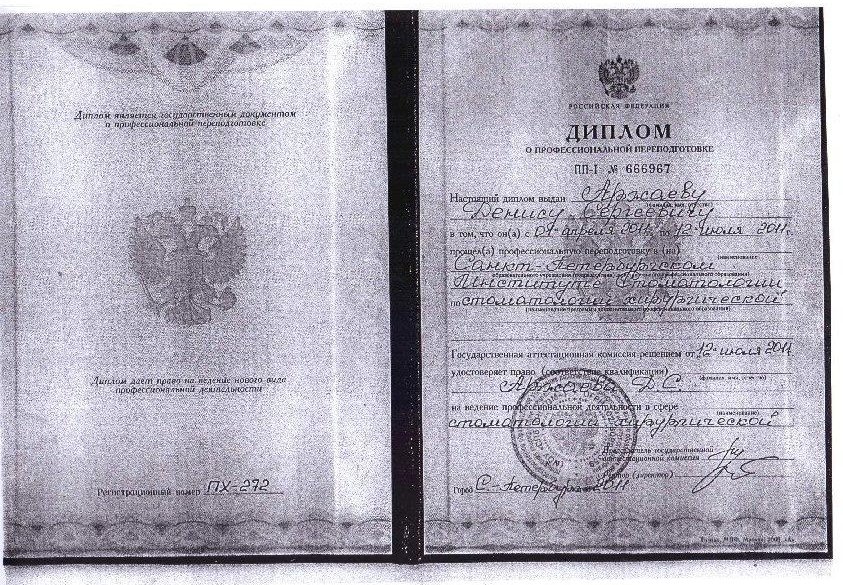 Диплом является государственным документом
о профессиональной переподготовке
Диплом дает право на ведение нового вида
профессиональной деятельности
Регистрационный номер ПХ-272
РОССИЙСКАЯ ФЕДЕРАЦИЯ
ДИПЛОМ
О ПРОФЕССИОНАЛЬНОЙ ПЕРЕПОДГОТОВКЕ
ПП-I № 666967
Настоящий диплом выдан Аржаеву
(фамилия, имя, отчество)
Денису Сергеевичу
в том, что он(а) с 01 апреля 2011г. по 12 июля 2011г.
прошел(а) профессиональную переподготовку в (на)
(наименование
Санкт-Петербургском
образовательного учреждения (подразделения) дополнительного профессионального образования)
Институте Стоматологии
по стоматологии хирургической
(наименование программы дополнительного профессионального образования)
Государственная аттестационная комиссия решением от 12 июля 2011
удостоверяет право (соответствие квалификации)
(фамилия, имя, отчество)
Аржаева Д.С.
на ведение профессиональной деятельности в сфере
(наименование)
стоматологии хирургической
Председатель государственной
аттестационной комиссии
Ректор (директор)
Город С-Петербург 2011